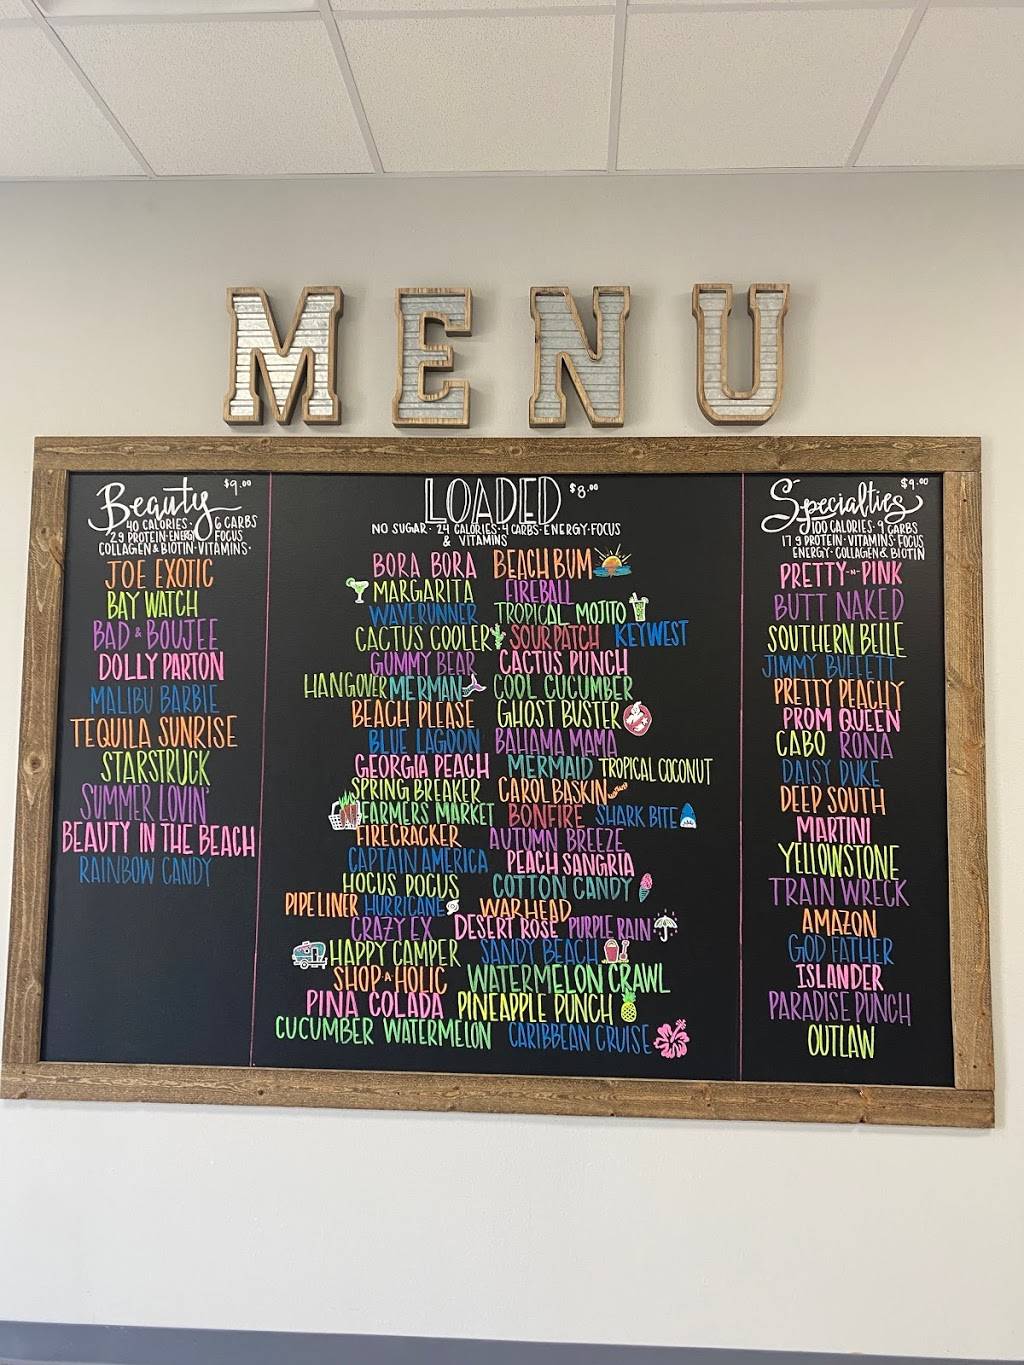 MENU
Beauty $9.00
40 CALORIES · 6 CARBS
29 PROTEIN · ENERGY FOCUS
COLLAGEN & BIOTIN · VITAMINS ·
JOE EXOTIC
BAY WATCH
BAD & BOUJEE
DOLLY PARTON
MALIBU BARBIE
TEQUILA SUNRISE
STARSTRUCK
SUMMER LOVIN'
BEAUTY IN THE BEACH
RAINBOW CANDY
LOADED $8.00
NO SUGAR · 24 CALORIES · 4 CARBS · ENERGY · FOCUS
& VITAMINS
BORA BORA BEACH BUM
MARGARITA FIREBALL
WAVERUNNER TROPICAL MOJITO
CACTUS COOLER SOURPATCH KEYWEST
GUMMY BEAR CACTUS PUNCH
HANGOVER MERMAN COOL CUCUMBER
BEACH PLEASE GHOST BUSTER
BLUE LAGOON BAHAMA MAMA
GEORGIA PEACH MERMAID TROPICAL COCONUT
SPRING BREAKER CAROL BASKIN
FARMERS MARKET BONFIRE SHARK BITE
FIRECRACKER AUTUMN BREEZE
CAPTAIN AMERICA PEACH SANGRIA
HOCUS POCUS COTTON CANDY
PIPELINER HURRICANE WARHEAD
CRAZY EX DESERT ROSE PURPLE RAIN
HAPPY CAMPER SANDY BEACH
SHOP-A-HOLIC WATERMELON CRAWL
PINA COLADA PINEAPPLE PUNCH
CUCUMBER WATERMELON CARIBBEAN CRUISE
Specialties $9.00
100 CALORIES · 9 CARBS
17 g PROTEIN · VITAMINS · FOCUS
ENERGY · COLLAGEN & BIOTIN
PRETTY-N-PINK
BUTT NAKED
SOUTHERN BELLE
JIMMY BUFFETT
PRETTY PEACHY
PROM QUEEN
CABO RONA
DAISY DUKE
DEEP SOUTH
MARTINI
YELLOWSTONE
TRAIN WRECK
AMAZON
GOD FATHER
ISLANDER
PARADISE PUNCH
OUTLAW